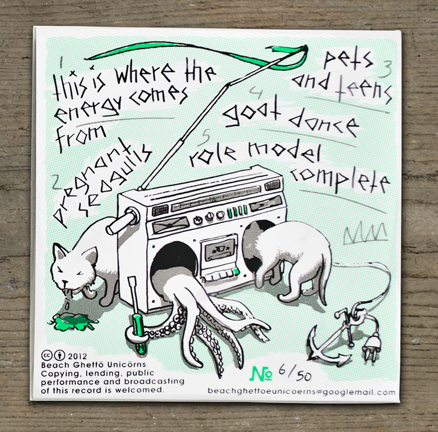 1
this is where the
energy comes
from
2
pregnant
seagulls
3
pets
and teens
4
goat dance
5
role model
complete
2012
Beach Ghettö Unicörns
Copying, lending, public
performance and broadcasting
of this record is welcomed.
No 6/50
beachghettoeunicoerns@googlemail.com